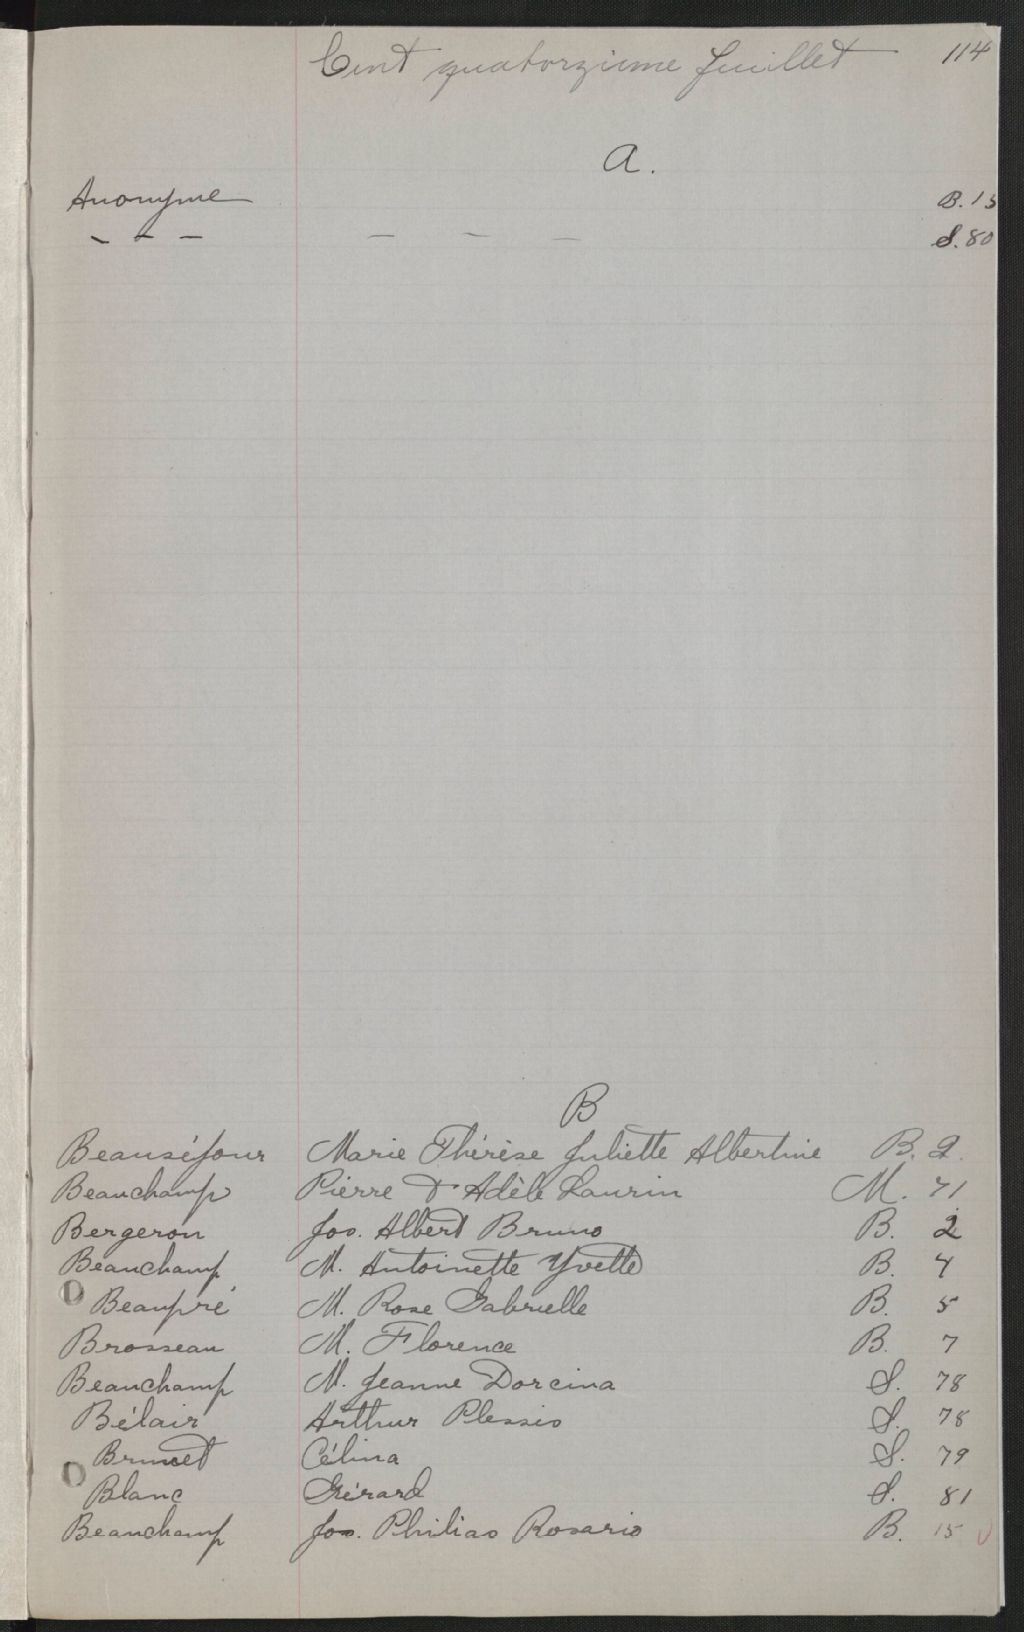 Cent quatorzieme feuillet 114
A.
Anonyme B. 13
- - - - - - S. 80
B
Beauséjour Marie Thérèse Juliette Albertine B. 2.
Beauchamp Pierre & Adèle Laurin M. 71
Bergeron Jos. Albert Bruno B. 2
Beauchamp M. Antoinette Yvette B. 4
Beaupré M. Rose Gabrielle B. 5
Brosseau M. Florence B. 7
Beauchamp M. Jeanne Dorcina S. 78
Bélair Arthur Plessis S. 78
Brunet Célina S. 79
Blanc Gérard S. 81
Beauchamp Jos. Philias Rosario B. 15